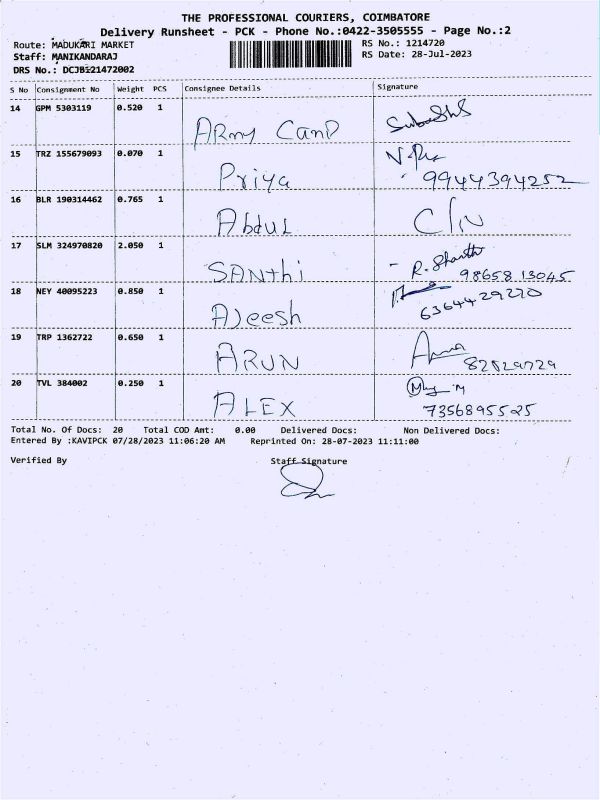 THE PROFESSIONAL COURIERS, COIMBATORE
Delivery Runsheet - PCK - Phone No.:0422-3505555 - Page No.:2
Route: MADUKARI MARKET
RS No.: 1214720
Staff: MANIKANDARAJ
RS Date: 28-Jul-2023
DRS No.: DCJB121472002
S No Consignment No Weight PCS Consignee Details Signature
14 GPM 5303119 0.520 1
ARmy CanD
15 TRZ 155679093 0.070 1
Priya 9944394252
16 BLR 190314462 0.765 1
Abdul
17 SLM 324970820 2.050 1
SANthi R. Shanthi 98658 13045
18 NEY 40095223 0.850 1
AJeesh 6364429270
19 TRP 1362722 0.650 1
ARUN
20 TVL 384002 0.250 1
ALEX 7356895525
Total No. Of Docs: 20 Total COD Amt: 0.00 Delivered Docs: Non Delivered Docs:
Entered By :KAVIPCK 07/28/2023 11:06:20 AM Reprinted On: 28-07-2023 11:11:00
Verified By Staff Signature